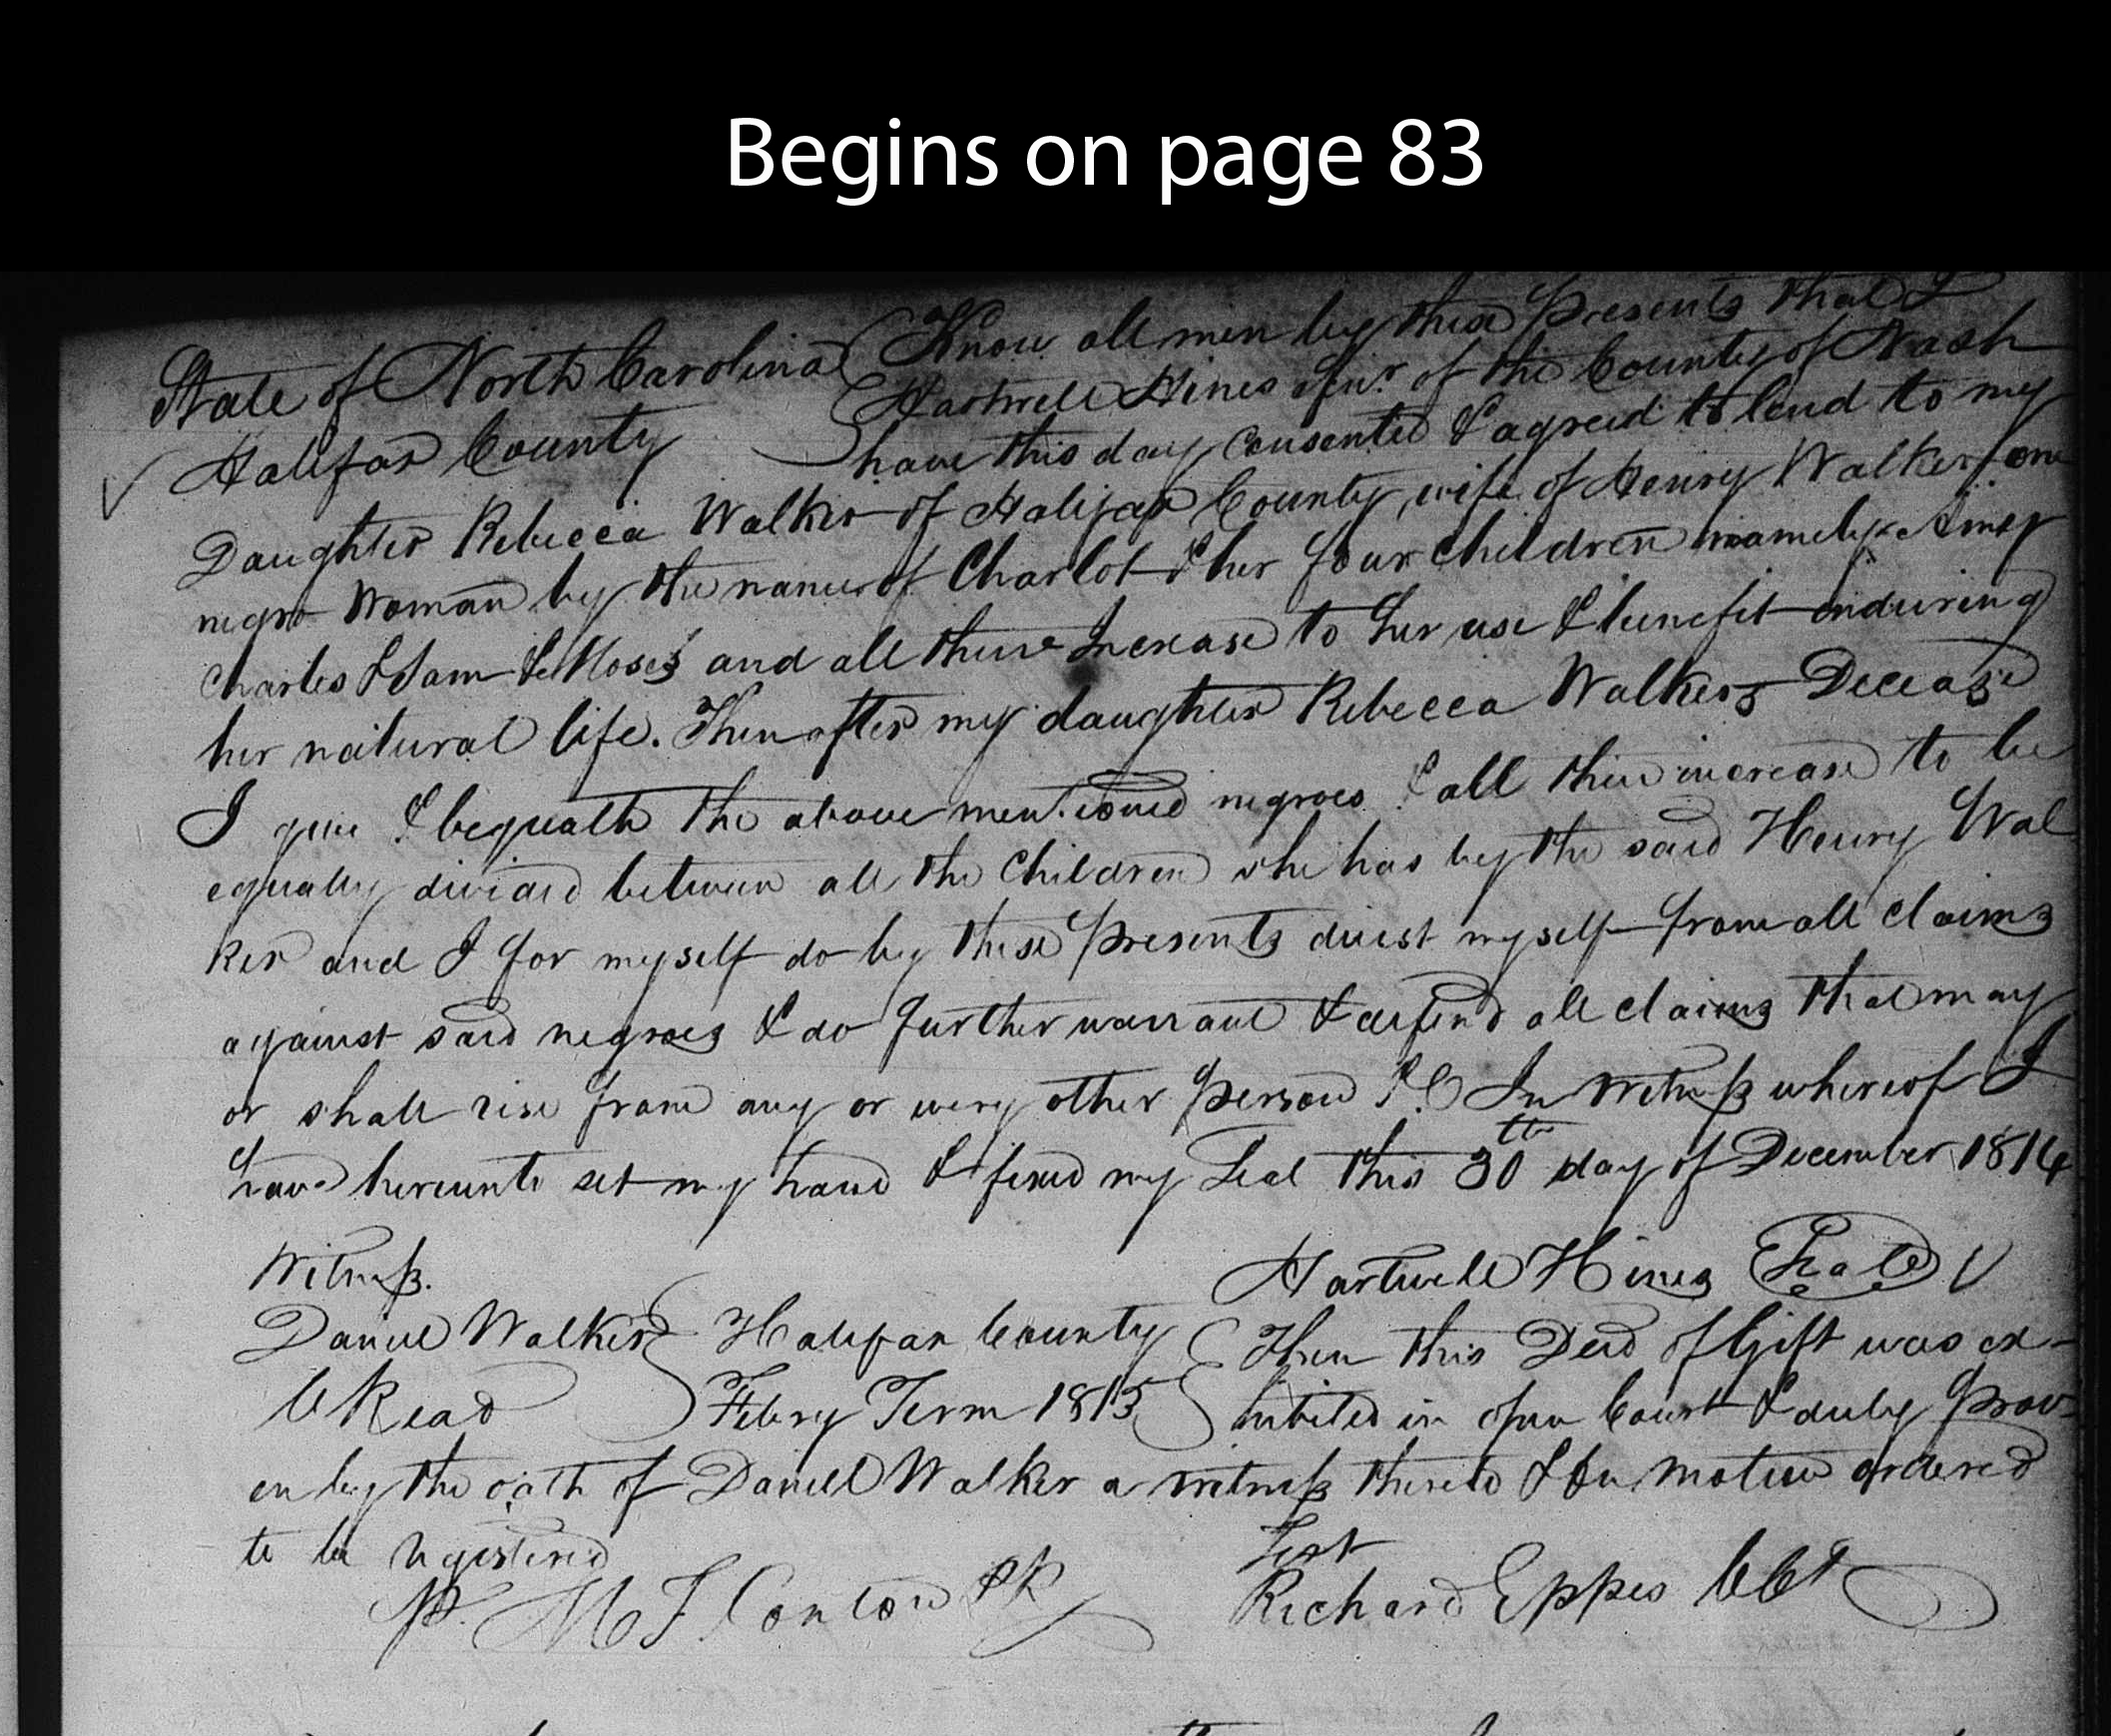 Begins on page 83
State of North Carolina Know all men by these Presents that I
Halifax County Hartwell Hines Senr. of the County of Nash
have this day consented & agreed to lend to my
Daughter Rebecca Walker of Halifax County, wife of Henry Walker, one
negro Woman by the name of Charlot & her four Children namely Amey
Charles & Sam & Moses and all there Increase to her use & benefit enduring
her natural life. Then after my daughter Rebecca Walkers Decease
I give & bequeath the above mentioned negroes & all their increase to be
equally divided between all the Children she has by the said Henry Wal
ker and I for myself do by these Presents divest myself from all claims
against said negroes & do further warrant & defend all claims that may
or shall rise from any or every other Person &C In Witness whereof I
have hereunto set my hand & fixed my Seal this 30th day of December 1814
Witness. Hartwell Hines Seal
Daniel Walker Halifax County Then this Deed of Gift was ex-
C Read Febry Term 1815 hibited in open Court & duly Prov-
en by the oath of Daniel Walker a witness thereto & On motion ordered
to be registered Test
Richard Eppes CCt